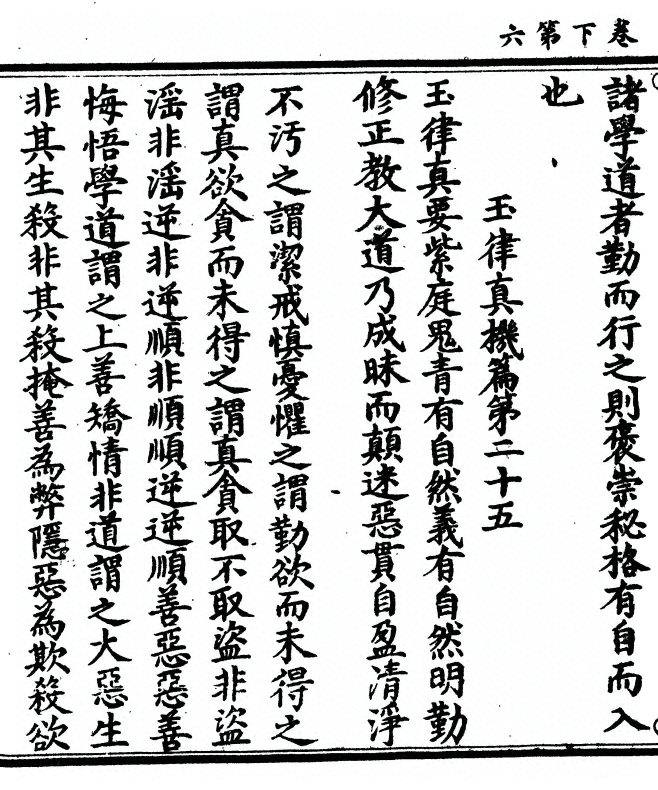 卷下第六
諸學道者勤而行之則褒崇秘格有自而入
也
玉律真機篇第二十五
玉律真要紫庭鬼青有自然義有自然明勤
修正教大道乃成昧而顛迷惡貫自盈清淨
不汚之謂潔戒慎憂懼之謂勤欲而未得之
謂真欲貪而未得之謂真貪取不取盜非盜
滛非滛逆非逆順非順順逆逆順善惡惡善
悔悟學道謂之上善矯情非道謂之大惡生
非其生殺非其殺掩善為弊隱惡為欺殺欲